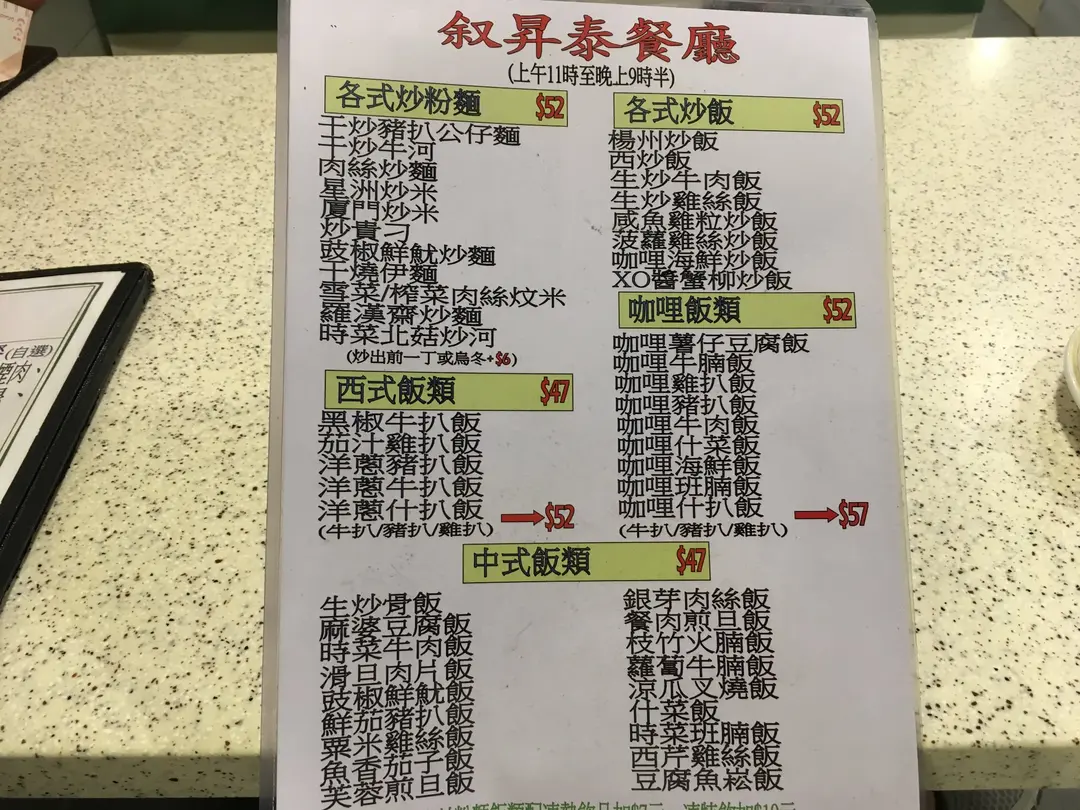 叙昇泰餐廳
(上午11時至晚上9時半)
各式炒粉麵 $52
干炒豬扒公仔麵
干炒牛河
肉絲炒麵
星洲炒米
廈門炒米
炒貴刁
豉椒鮮魷炒麵
干燒伊麵
雪菜/榨菜肉絲炆米
羅漢齋炒麵
時菜北菇炒河
(炒出前一丁或烏冬+$6)
西式飯類 $47
黑椒牛扒飯
茄汁雞扒飯
洋蔥豬扒飯
洋蔥牛扒飯
洋蔥什扒飯 $52
(牛扒/豬扒/雞扒)
各式炒飯 $52
楊州炒飯
西炒飯
生炒牛肉飯
生炒雞絲飯
咸魚雞粒炒飯
菠蘿雞絲炒飯
咖哩海鮮炒飯
XO醬蟹柳炒飯
咖哩飯類 $52
咖哩薯仔豆腐飯
咖哩牛腩飯
咖哩雞扒飯
咖哩豬扒飯
咖哩牛肉飯
咖哩什菜飯
咖哩海鮮飯
咖哩班腩飯
咖哩什扒飯 $57
(牛扒/豬扒/雞扒)
中式飯類 $47
生炒骨飯
麻婆豆腐飯
時菜牛肉飯
滑旦肉片飯
豉椒鮮魷飯
鮮茄豬扒飯
粟米雞絲飯
魚香茄子飯
芙蓉煎旦飯
銀芽肉絲飯
餐肉煎旦飯
枝竹火腩飯
蘿蔔牛腩飯
涼瓜叉燒飯
什菜飯
時菜班腩飯
西芹雞絲飯
豆腐魚崧飯
(自選)
肉、